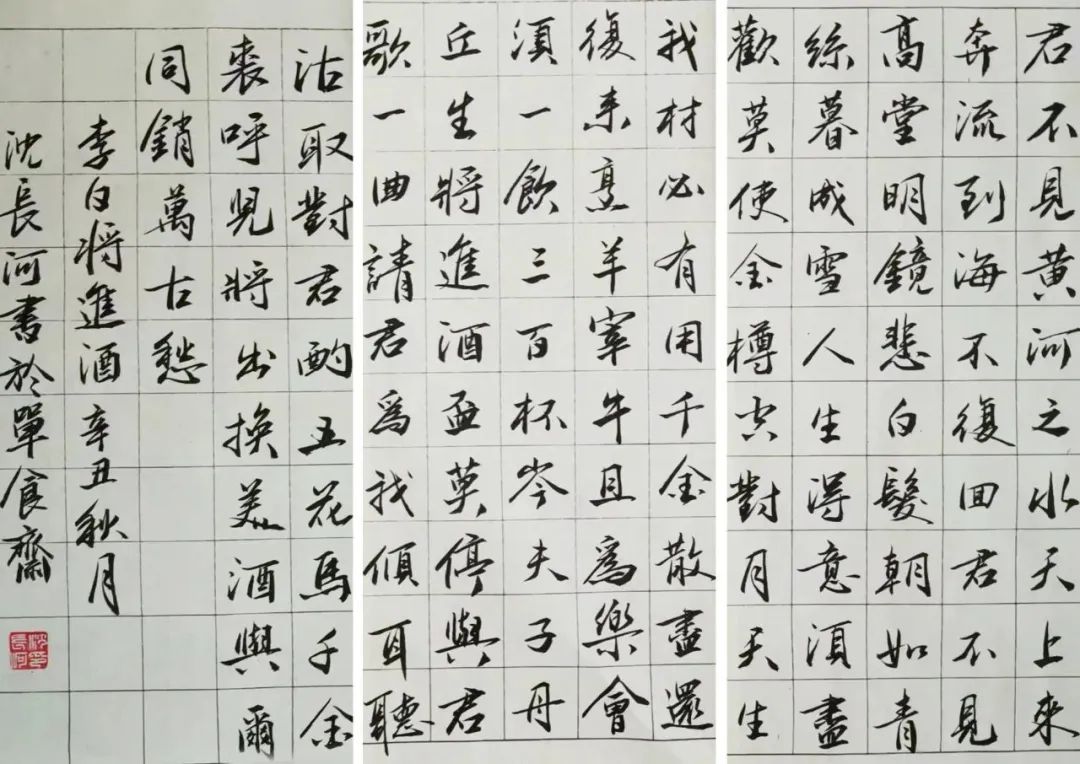 君不見黃河之水天上來
奔流到海不復回君不見
高堂明鏡悲白髮朝如青
絲暮成雪人生得意須盡
歡莫使金樽空對月天生
我材必有用千金散盡還
復來烹羊宰牛且為樂會
須一飲三百杯岑夫子丹
丘生將進酒杯莫停與君
歌一曲請君為我傾耳聽
沽取對君酌五花馬千金
裘呼兒將出換美酒與爾
同銷萬古愁
李白將進酒辛丑秋月
沈長河書於單食齋
沈長河印